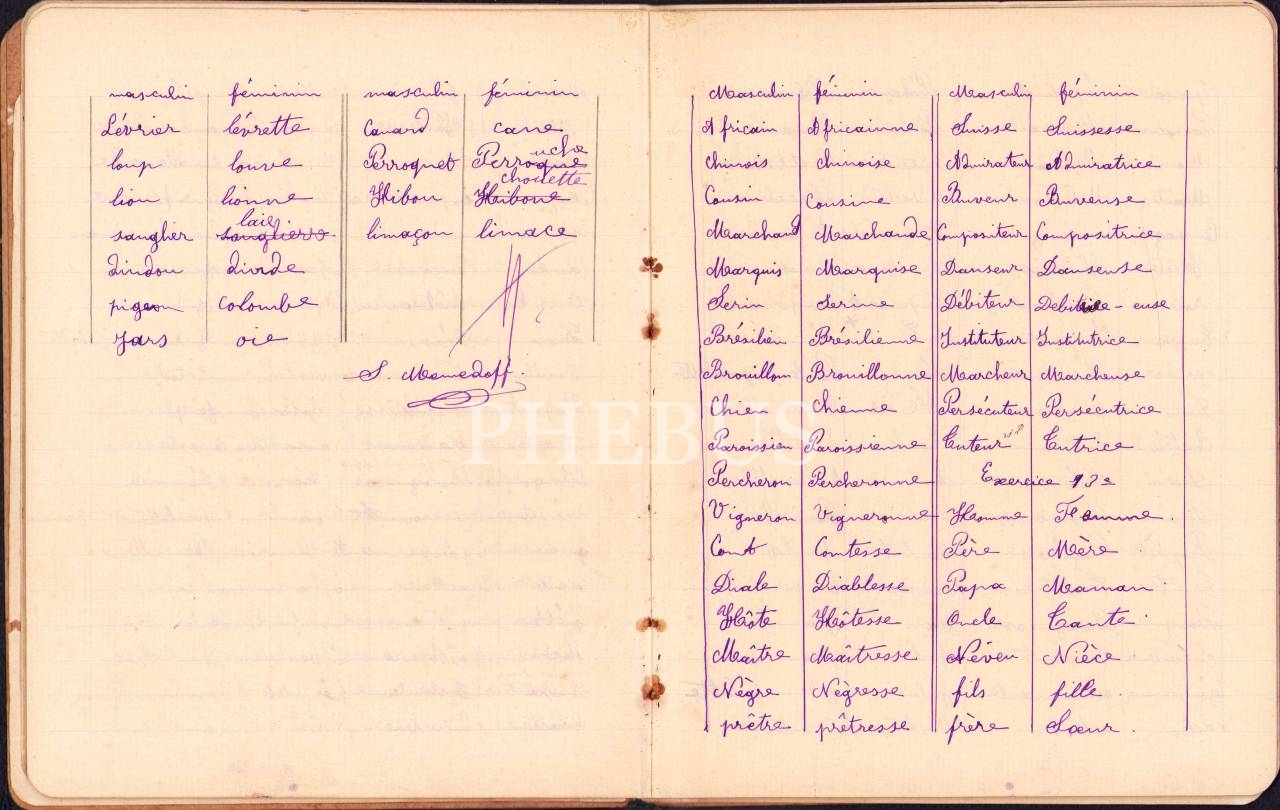 masculin féminin masculin féminin
Lévrier lévrette Canard cane
loup louve Perroquet Perroque uche
lion lionne Hibou Hiboue chouette
sanglier laie limaçon limace
dindon dinde
pigeon colombe
Jars oie
S. Mamedoff
PHEBUS
Masculin féminin Masculin féminin
Africain Africainne Suisse Suissesse
Chinois chinoise Admirateur Admiratrice
Cousin Cousine Buveur Buveuse
Marchand Marchande Compositeur Compositrice
Marquis Marquise Danseur Danseuse
Serin Serine Débiteur Debitrice - euse
Brésilien Brésilienne Instituteur Institutrice
Brouillon Brouillonne Marcheur Marcheuse
Chien Chienne Persécuteur Persécutrice
Paroissien Paroissienne Tuteur Tutrice
Percheron Percheronne Exercice 13e
Vigneron Vigneronne Homme Femme.
Comt Comtesse Père Mère.
Diale Diablesse Papa Maman.
Hôte Hôtesse Oncle Tante.
Maître Maîtresse Néveu Nièce.
Nègre Nègresse fils fille.
prêtre prêtresse frère Sœur.